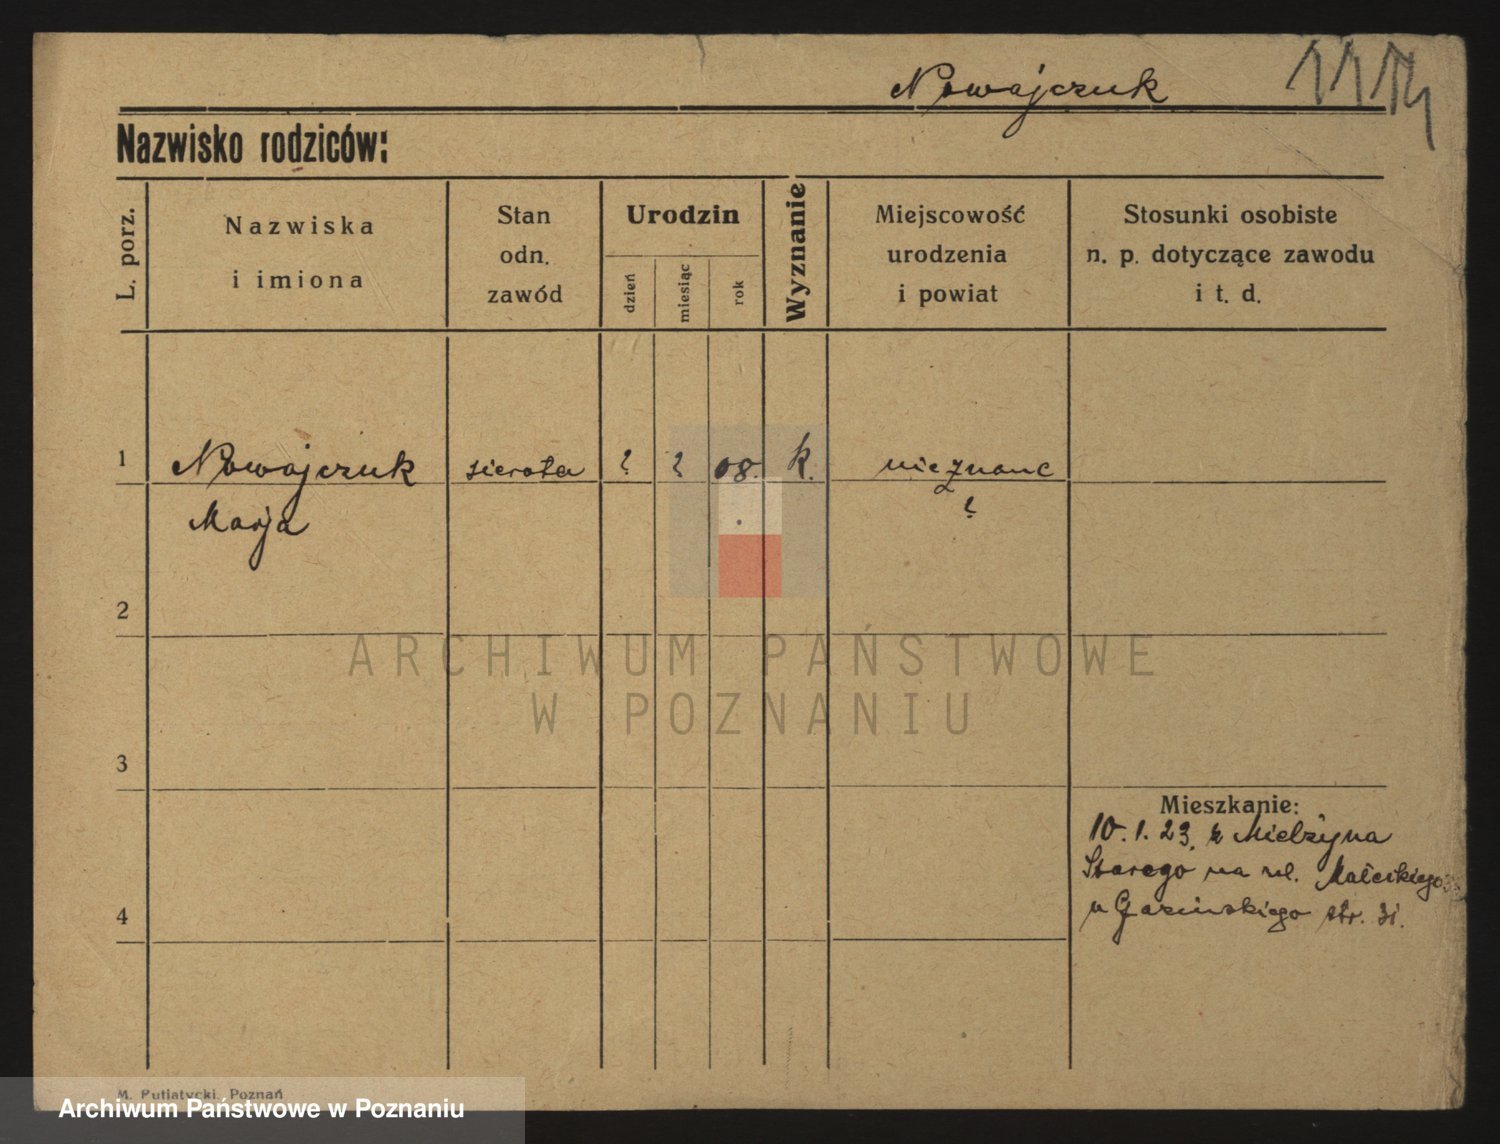 Nowajczuk 1114
Nazwisko rodziców:
L. porz.
Nazwiska
i imiona
Stan
odn.
zawód
Urodzin
dzień
miesiąc
rok
Wyznanie
Miejscowość
urodzenia
i powiat
Stosunki osobiste
n. p. dotyczące zawodu
i t. d.
1 Nowajczuk sierota ? ? 08. k. nieznane
Marja ?
2
ARCHIWUM PAŃSTWOWE
W POZNANIU
3
Mieszkanie:
10.1.23. z Mielżyna
Starego na ul. Małeckiego
u str. 31.
4
M. Putiatycki, Poznań
Archiwum Państwowe w Poznaniu